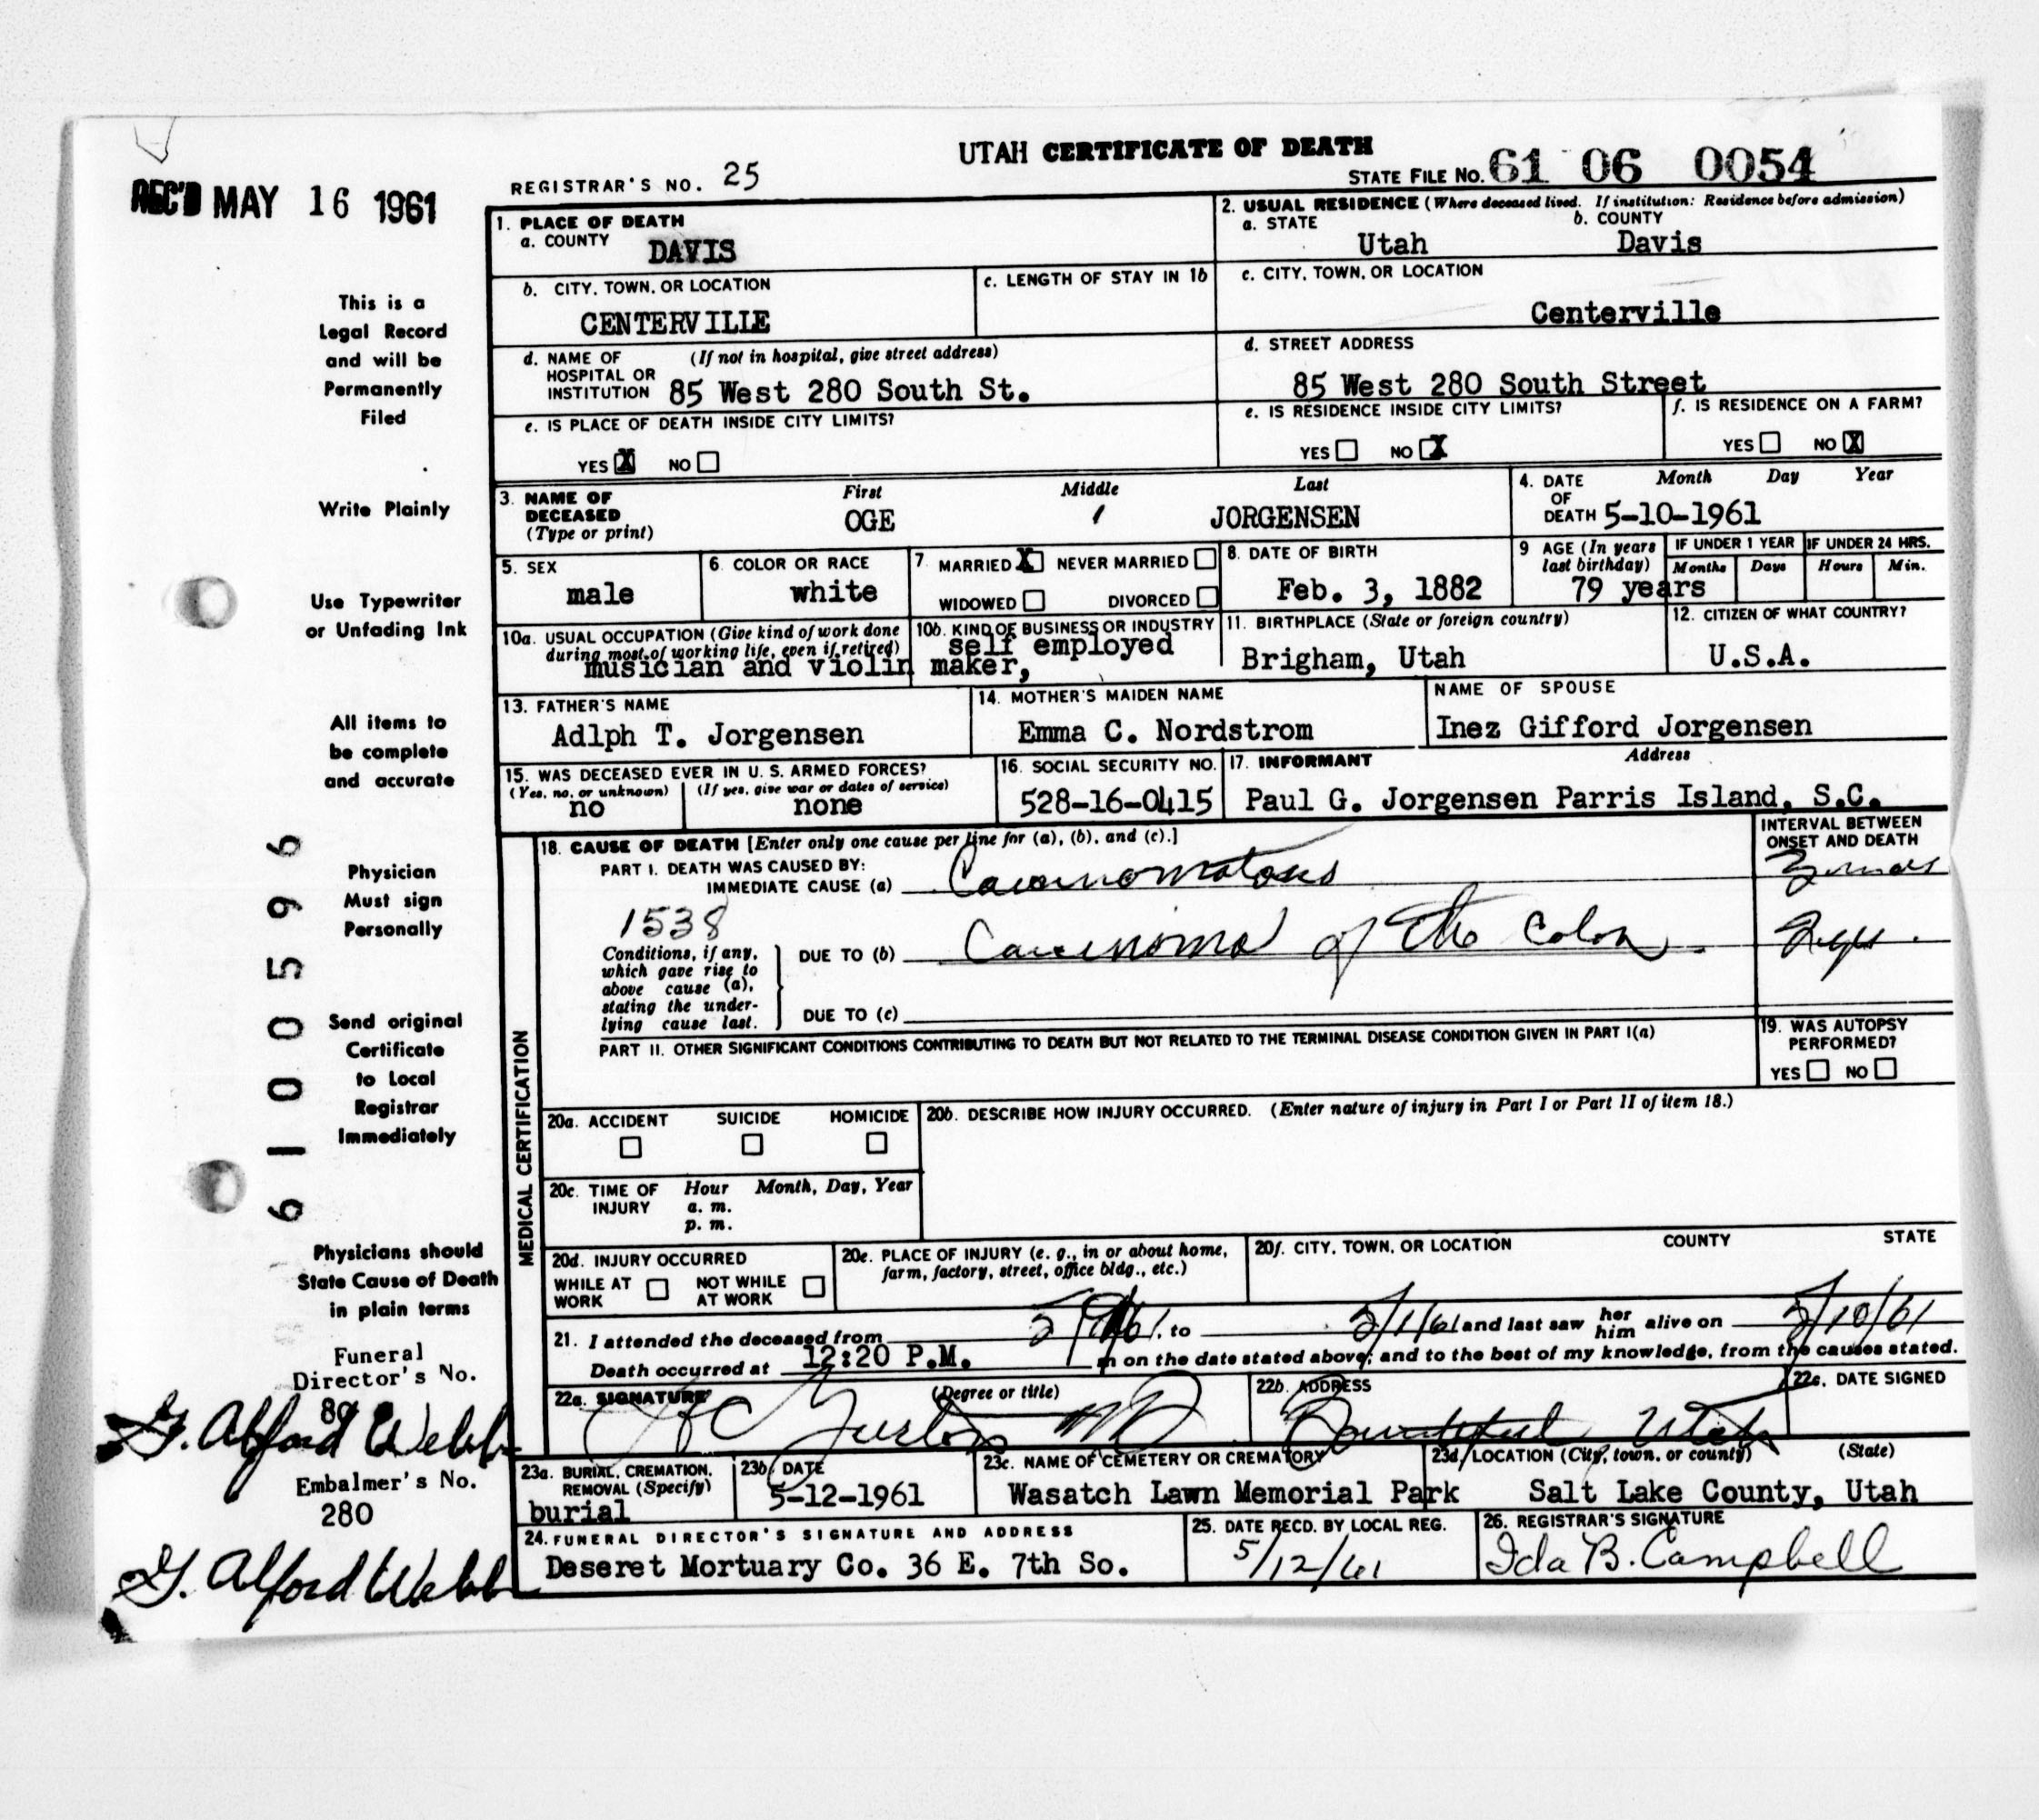 UTAH CERTIFICATE OF DEATH
REC'D MAY 16 1961
REGISTRAR'S NO. 25
STATE FILE NO. 61 06 0054
1. PLACE OF DEATH
a. COUNTY
DAVIS
2. USUAL RESIDENCE (Where deceased lived. If institution: Residence before admission)
a. STATE
b. COUNTY
Utah
Davis
b. CITY, TOWN, OR LOCATION
CENTERVILLE
c. LENGTH OF STAY IN 1b
c. CITY, TOWN, OR LOCATION
Centerville
d. NAME OF HOSPITAL OR INSTITUTION
(If not in hospital, give street address)
85 West 280 South St.
d. STREET ADDRESS
85 West 280 South Street
e. IS PLACE OF DEATH INSIDE CITY LIMITS?
YES X NO
e. IS RESIDENCE INSIDE CITY LIMITS?
YES NO X
f. IS RESIDENCE ON A FARM?
YES NO X
3. NAME OF DECEASED
(Type or print)
First
Middle
Last
OGE
/
JORGENSEN
4. DATE OF DEATH
Month Day Year
5-10-1961
5. SEX
male
6. COLOR OR RACE
white
7. MARRIED X NEVER MARRIED
WIDOWED DIVORCED
8. DATE OF BIRTH
Feb. 3, 1882
9 AGE (In years last birthday)
79 years
IF UNDER 1 YEAR
Months Days
IF UNDER 24 HRS.
Hours Min.
10a. USUAL OCCUPATION (Give kind of work done
during most of working life, even if retired)
musician and violin maker,
10b. KIND OF BUSINESS OR INDUSTRY
self employed
11. BIRTHPLACE (State or foreign country)
Brigham, Utah
12. CITIZEN OF WHAT COUNTRY?
U.S.A.
13. FATHER'S NAME
Adlph T. Jorgensen
14. MOTHER'S MAIDEN NAME
Emma C. Nordstrom
NAME OF SPOUSE
Inez Gifford Jorgensen
15. WAS DECEASED EVER IN U. S. ARMED FORCES?
(Yes, no, or unknown) (If yes, give war or dates of service)
no
none
16. SOCIAL SECURITY NO.
528-16-0415
17. INFORMANT
Address
Paul G. Jorgensen Parris Island, S.C.
MEDICAL CERTIFICATION
18. CAUSE OF DEATH [Enter only one cause per line for (a), (b), and (c).]
PART I. DEATH WAS CAUSED BY:
IMMEDIATE CAUSE (a) Carcinomatosis
INTERVAL BETWEEN
ONSET AND DEATH
1538
Conditions, if any,
which gave rise to
above cause (a),
stating the under-
lying cause last.
DUE TO (b) Carcinoma of the Colon
DUE TO (c)
PART II. OTHER SIGNIFICANT CONDITIONS CONTRIBUTING TO DEATH BUT NOT RELATED TO THE TERMINAL DISEASE CONDITION GIVEN IN PART I(a)
19. WAS AUTOPSY
PERFORMED?
YES NO
20a. ACCIDENT SUICIDE HOMICIDE
20b. DESCRIBE HOW INJURY OCCURRED. (Enter nature of injury in Part I or Part II of item 18.)
20c. TIME OF INJURY
Hour Month, Day, Year
a. m.
p. m.
20d. INJURY OCCURRED
WHILE AT WORK
NOT WHILE AT WORK
20e. PLACE OF INJURY (e. g., in or about home,
farm, factory, street, office bldg., etc.)
20f. CITY, TOWN, OR LOCATION COUNTY STATE
21. I attended the deceased from to 5/1/61 and last saw her him alive on 5/10/61
Death occurred at 12:20 P.M. m on the date stated above; and to the best of my knowledge, from the causes stated.
22a. SIGNATURE
(Degree or title)
MD
22b. ADDRESS
Bountiful Utah
22c. DATE SIGNED
23a. BURIAL, CREMATION,
REMOVAL (Specify)
burial
23b. DATE
5-12-1961
23c. NAME OF CEMETERY OR CREMATORY
Wasatch Lawn Memorial Park
23d. LOCATION (City, town, or county) (State)
Salt Lake County, Utah
24. FUNERAL DIRECTOR'S SIGNATURE AND ADDRESS
Deseret Mortuary Co. 36 E. 7th So.
25. DATE RECD. BY LOCAL REG.
5/12/61
26. REGISTRAR'S SIGNATURE
Ida B. Campbell
This is a
Legal Record
and will be
Permanently
Filed
Write Plainly
Use Typewriter
or Unfading Ink
All items to
be complete
and accurate
Physician
Must sign
Personally
Send original
Certificate
to Local
Registrar
Immediately
Physicians should
State Cause of Death
in plain terms
Funeral
Director's No.
G. Alford Webb
Embalmer's No.
280
G. Alford Webb
61005969